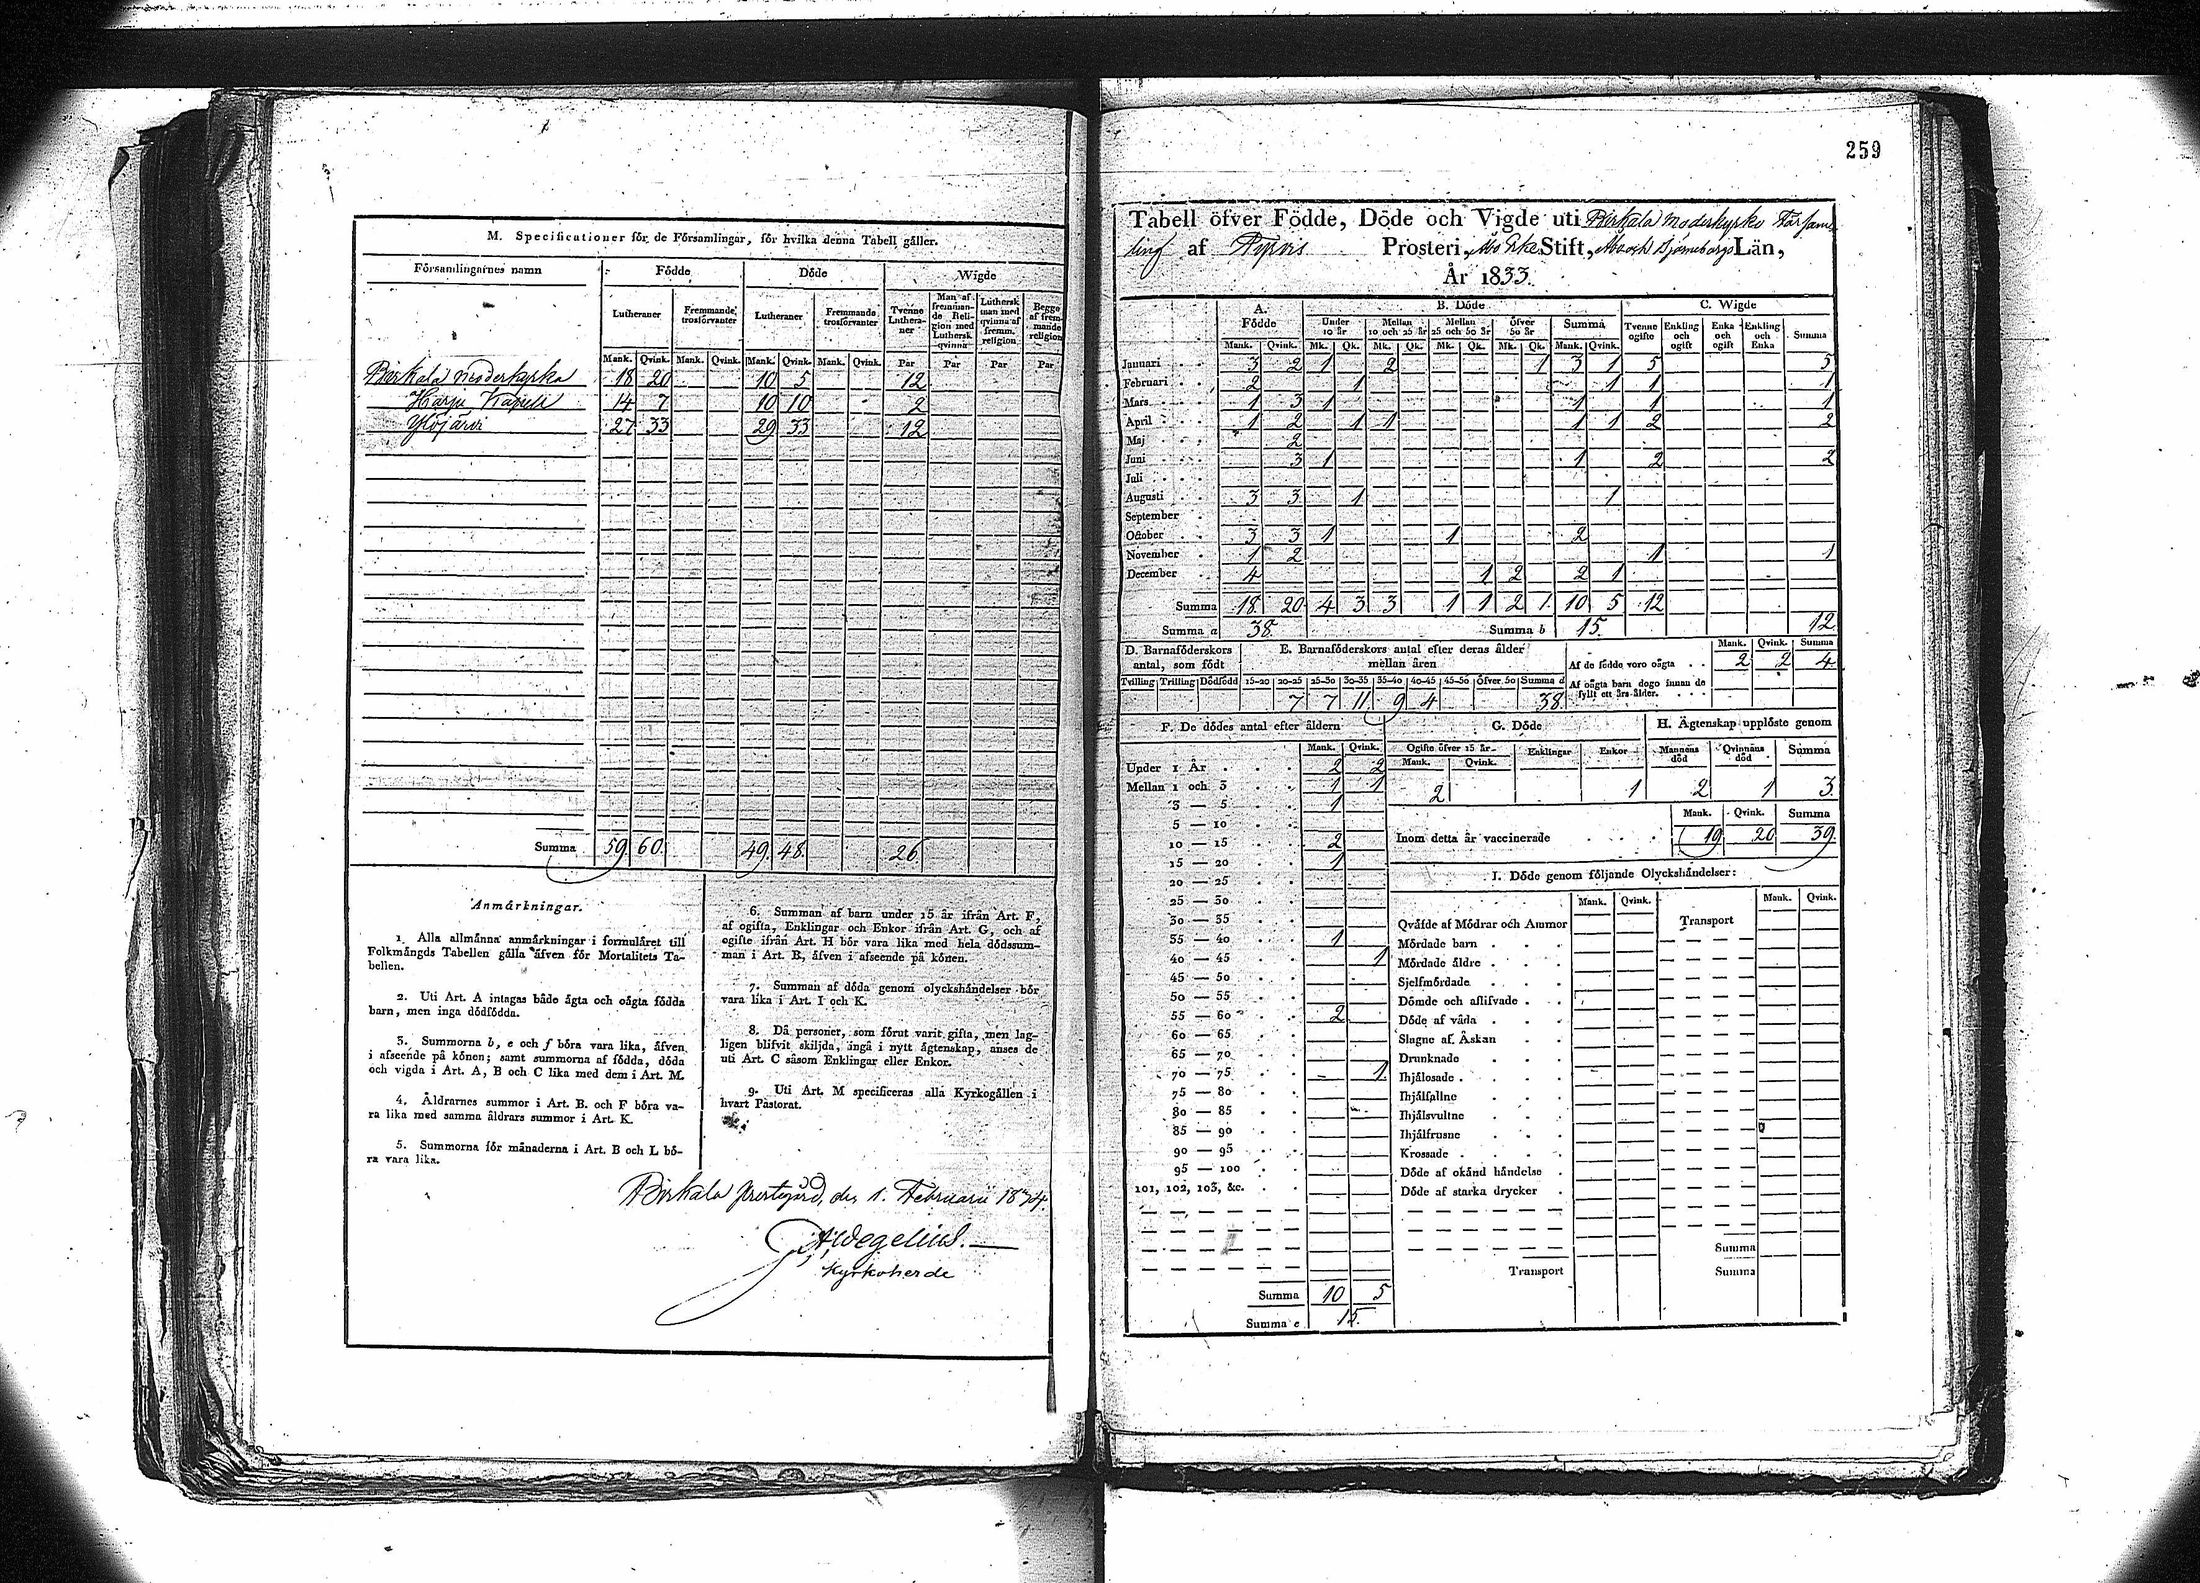 M. Specificationer för de Församlingar, för hvilka denna Tabell gäller.
Församlingarnes namn Födde Döde Wigde
Lutheraner Fremmande trosförvanter Lutheraner Fremmande trosförvanter Tvenne Lutheraner Man af fremmande Religion med Luthersk qvinna Luthersk man med qvinna af fremm. religion Begge af fremmande religion
Mank. Qvink. Mank. Qvink. Mank. Qvink. Mank. Qvink. Par Par Par Par
Birkala moderkyrka 18 20 10 5 12
Harju Kapell 14 7 10 10 2
Ylöjärvi 27 33 29 33 12
Summa 59 60 49. 48. 26
Anmärkningar.
1. Alla allmänna anmärkningar i formuläret till
Folkmängds Tabellen gälla äfven för Mortalitets Ta-
bellen.
2. Uti Art. A intagas både ägta och oägta födda
barn, men inga dödfödda.
3. Summorna b, e och f böra vara lika, äfven
i afseende på könen; samt summorna af födda, döda
och vigda i Art. A, B och C lika med dem i Art. M.
4. Åldrarnes summor i Art. B. och F böra va-
ra lika med samma åldrars summor i Art. K.
5. Summorna för månaderna i Art. B och L bö-
ra vara lika.
6. Summan af barn under 15 år ifrån Art. F,
af ogifta, Enklingar och Enkor ifrån Art. G, och af
ogifte ifrån Art. H bör vara lika med hela dödssum-
man i Art. B, äfven i afseende på könen.
7. Summan af döda genom olyckshändelser bör
vara lika i Art. I och K.
8. Då personer, som förut varit gifta, men lag-
ligen blifvit skiljda, ingå i nytt ägtenskap, anses de
uti Art. C såsom Enklingar eller Enkor.
9. Uti Art. M specificeras alla Kyrkogällen i
hvart Pastorat.
Birkala Prestegård, den 1. Februarii 1834.
Wegelius.
Kyrkoherde
259
Tabell öfver Födde, Döde och Vigde uti Birkala moderkyrko Försam-
ling af Prosteri, Åbo Erke Stift, Åbo och Björneborgs Län,
År 1833.
A. Födde B. Döde C. Wigde
Under 10 år Mellan 10 och 25 år Mellan 25 och 50 år Öfver 50 år Summa Tvenne ogifte Enkling och ogift Enka och ogift Enkling och Enka Summa
Mank. Qvink. Mk. Qk. Mk. Qk. Mk. Qk. Mk. Qk. Mank. Qvink.
Januari 3 2 1 2 1 3 1 5 5
Februari 2 1 1 1 1
Mars 1 3 1 1 1 1
April 1 2 1 1 1 1 2 2
Maj 2
Juni 3 1 1 2 2
Juli
Augusti 3 3 1 1
September
October 3 3 1 1 2
November 1 2 1 1
December 4 1 2 2 1
Summa 18. 20 4 3 3 1 1 2 1. 10 5 12
Summa a 38. Summa b 15. 12
D. Barnaföderskors antal, som födt E. Barnaföderskors antal efter deras ålder mellan åren Mank. Qvink. Summa
Af de födde voro oägta 2 2 4
Tvilling Trilling Dödfödd 15-20 20-25 25-30 30-35 35-40 40-45 45-50 Öfver 50 Summa d Af oägta barn dogo innan de fyllt ett års ålder.
7 7 11 9 4 38
F. De dödes antal efter åldern
Mank. Qvink.
Under 1 År 2 2
Mellan 1 och 3 1 1
3 — 5 1
5 — 10
10 — 15 2
15 — 20 1
20 — 25
25 — 30
30 — 35
35 — 40 1
40 — 45 1
45 — 50
50 — 55
55 — 60 2
60 — 65
65 — 70
70 — 75 1
75 — 80
80 — 85
85 — 90
90 — 95
95 — 100
101, 102, 103, &c.
Summa 10 5
Summa e 15.
G. Döde H. Ägtenskap upplöste genom
Ogifte öfver 15 år Enklingar Enkor Mannens död Qvinnans död Summa
Mank. Qvink.
2 1 2 1 3
Mank. Qvink. Summa
Inom detta år vaccinerade 19 20 39.
I. Döde genom följande Olyckshändelser:
Mank. Qvink. Mank. Qvink.
Qväfde af Mödrar och Ammor Transport
Mördade barn
Mördade äldre
Sjelfmördade
Dömde och aflifvade
Döde af våda
Slagne af Åskan
Drunknade
Ihjälosade
Ihjälfallne
Ihjälsvultne
Ihjälfrusne
Krossade
Döde af okänd händelse
Döde af starka drycker
Summa
Transport Summa